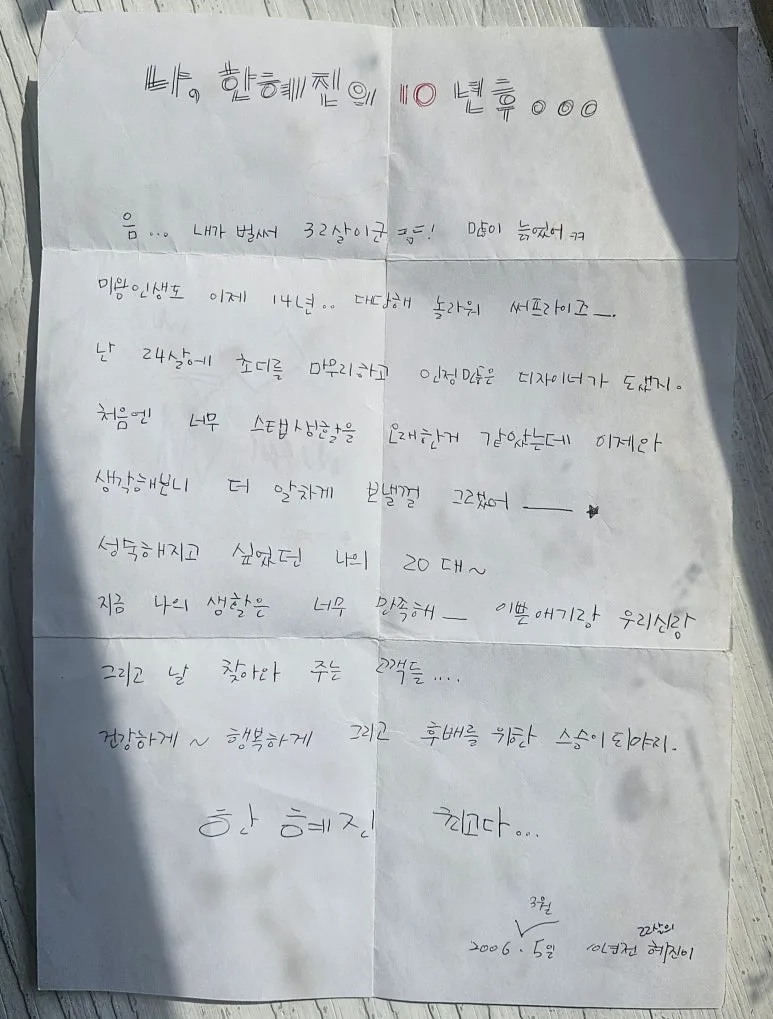 나, 한혜진의 10년후...
음... 내가 벌써 32살이군 많이 늙었어 ㅋㅋ
미용인생도 이제 14년.. 대당해 놀라워 써프라이즈 ㅡ.
난 24살에 초디를 마무리하고 인정많은 디자이너가 됐지.
처음엔 너무 스탭생활을 오래한거 같았는데 이제와
생각해보니 더 알차게 보낼껄 그랬어 ── ★
성숙해지고 싶었던 나의 20대~
지금 나의 생활은 너무 만족해 ㅡ 이쁜애기랑 우리신랑
그리고 날 찾아와 주는 고객들....
건강하게~ 행복하게 그리고 후배를 위한 스승이되야지.
한 혜 진 최고다...
3월
2006. 5일 22살의 혜진이